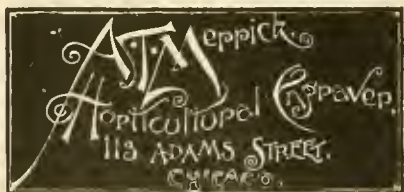 A.T. Merrick.
Horticultural Engraver.
113 ADAMS STREET.
CHICAGO.